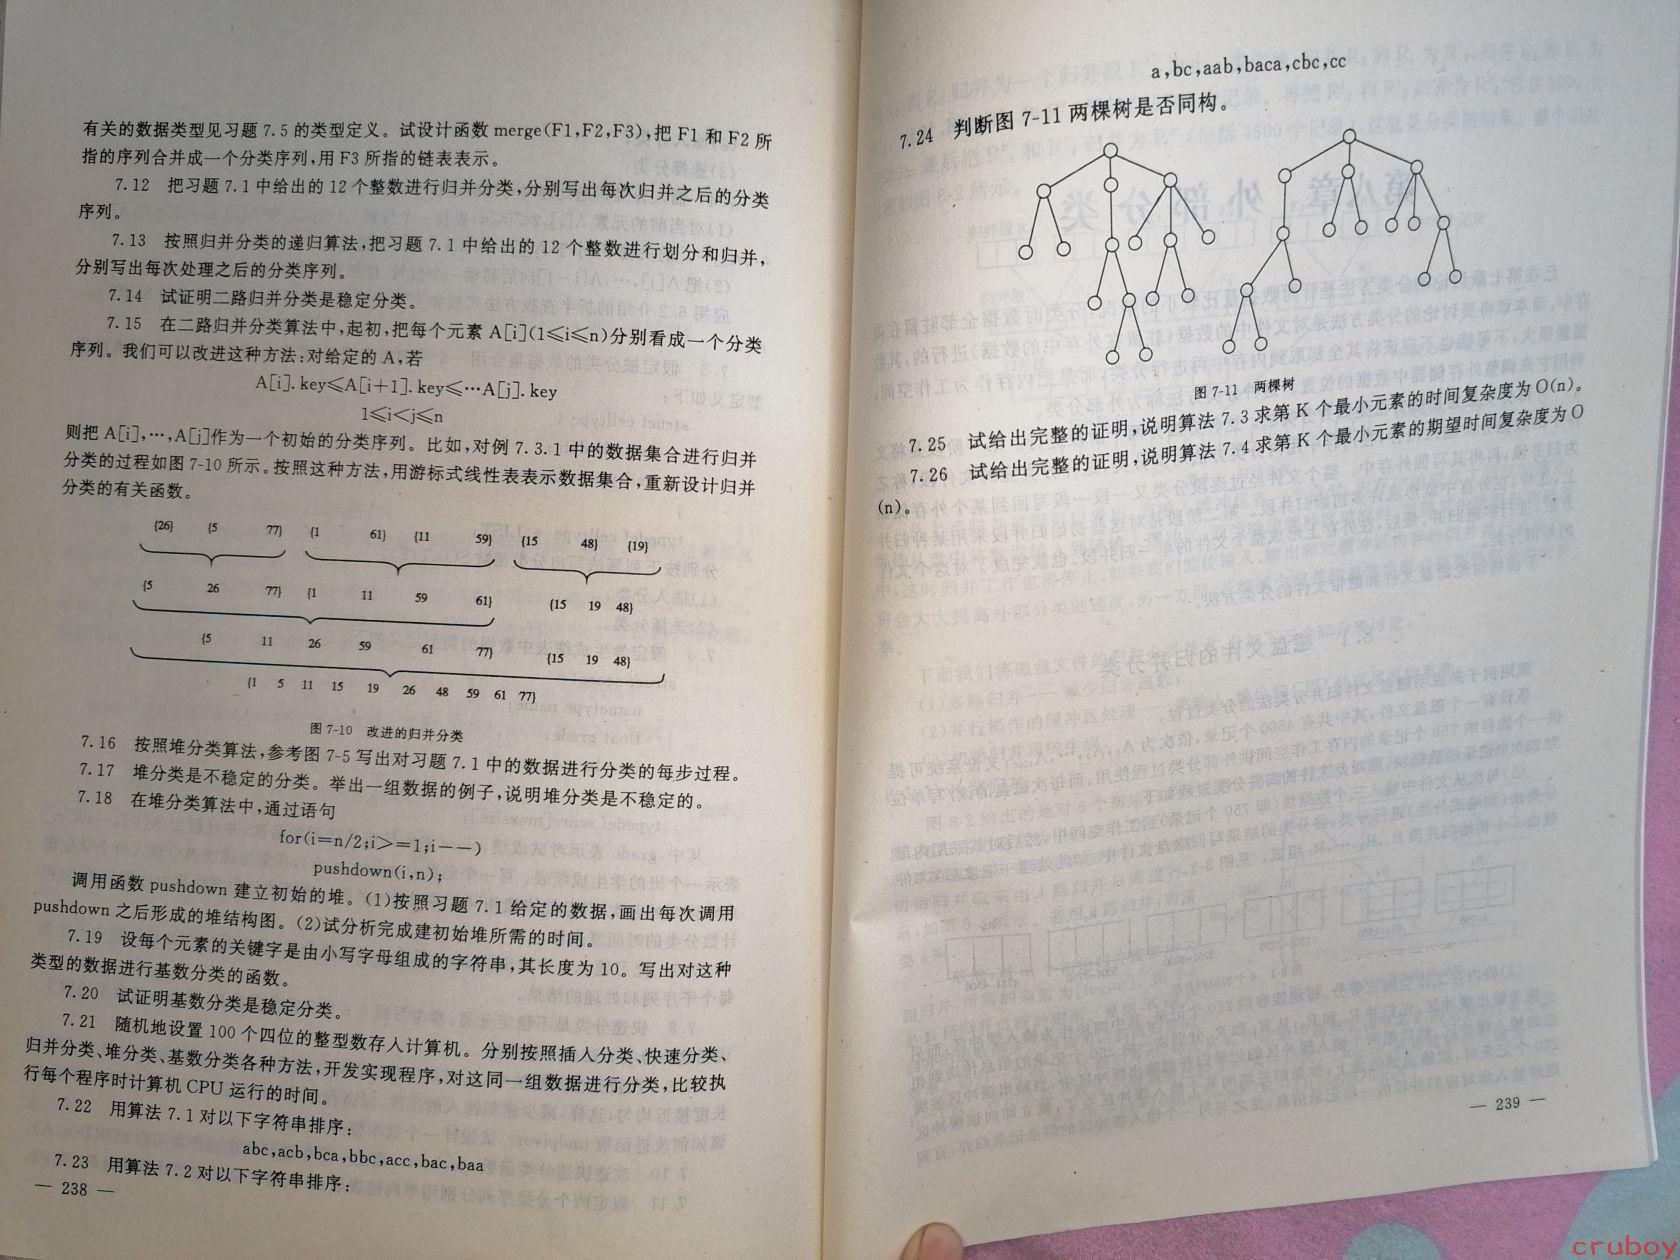 有关的数据类型见习题 7.5 的类型定义。试设计函数 merge(F1,F2,F3),把 F1 和 F2 所
指的序列合并成一个分类序列,用 F3 所指的链表表示。
7.12 把习题 7.1 中给出的 12 个整数进行归并分类,分别写出每次归并之后的分类
序列。
7.13 按照归并分类的递归算法,把习题 7.1 中给出的 12 个整数进行划分和归并,
分别写出每次处理之后的分类序列。
7.14 试证明二路归并分类是稳定分类。
7.15 在二路归并分类算法中,起初,把每个元素 A[i](1≤i≤n)分别看成一个分类
序列。我们可以改进这种方法:对给定的 A,若
A[i].key≤A[i+1].key≤…A[j].key
1≤i<j≤n
则把 A[i],…,A[j]作为一个初始的分类序列。比如,对例 7.3.1 中的数据集合进行归并
分类的过程如图 7-10 所示。按照这种方法,用游标式线性表表示数据集合,重新设计归并
分类的有关函数。
{26} {5 77} {1 61} {11 59} {15 48} {19}
{5 26 77} {1 11 59 61} {15 19 48}
{5 11 26 59 61 77} {15 19 48}
{1 5 11 15 19 26 48 59 61 77}
图 7-10 改进的归并分类
7.16 按照堆分类算法,参考图 7-5 写出对习题 7.1 中的数据进行分类的每步过程。
7.17 堆分类是不稳定的分类。举出一组数据的例子,说明堆分类是不稳定的。
7.18 在堆分类算法中,通过语句
for(i=n/2;i>=1;i--)
pushdown(i,n);
调用函数 pushdown 建立初始的堆。(1)按照习题 7.1 给定的数据,画出每次调用
pushdown 之后形成的堆结构图。(2)试分析完成建初始堆所需的时间。
7.19 设每个元素的关键字是由小写字母组成的字符串,其长度为 10。写出对这种
类型的数据进行基数分类的函数。
7.20 试证明基数分类是稳定分类。
7.21 随机地设置 100 个四位的整型数存入计算机。分别按照插入分类、快速分类、
归并分类、堆分类、基数分类各种方法,开发实现程序,对这同一组数据进行分类,比较执
行每个程序时计算机 CPU 运行的时间。
7.22 用算法 7.1 对以下字符串排序:
abc,acb,bca,bbc,acc,bac,baa
7.23 用算法 7.2 对以下字符串排序:
— 238 —
a,bc,aab,baca,cbc,cc
7.24 判断图 7-11 两棵树是否同构。
图 7-11 两棵树
7.25 试给出完整的证明,说明算法 7.3 求第 K 个最小元素的时间复杂度为 O(n)。
7.26 试给出完整的证明,说明算法 7.4 求第 K 个最小元素的期望时间复杂度为 O
(n)。
— 239 —
cruboy